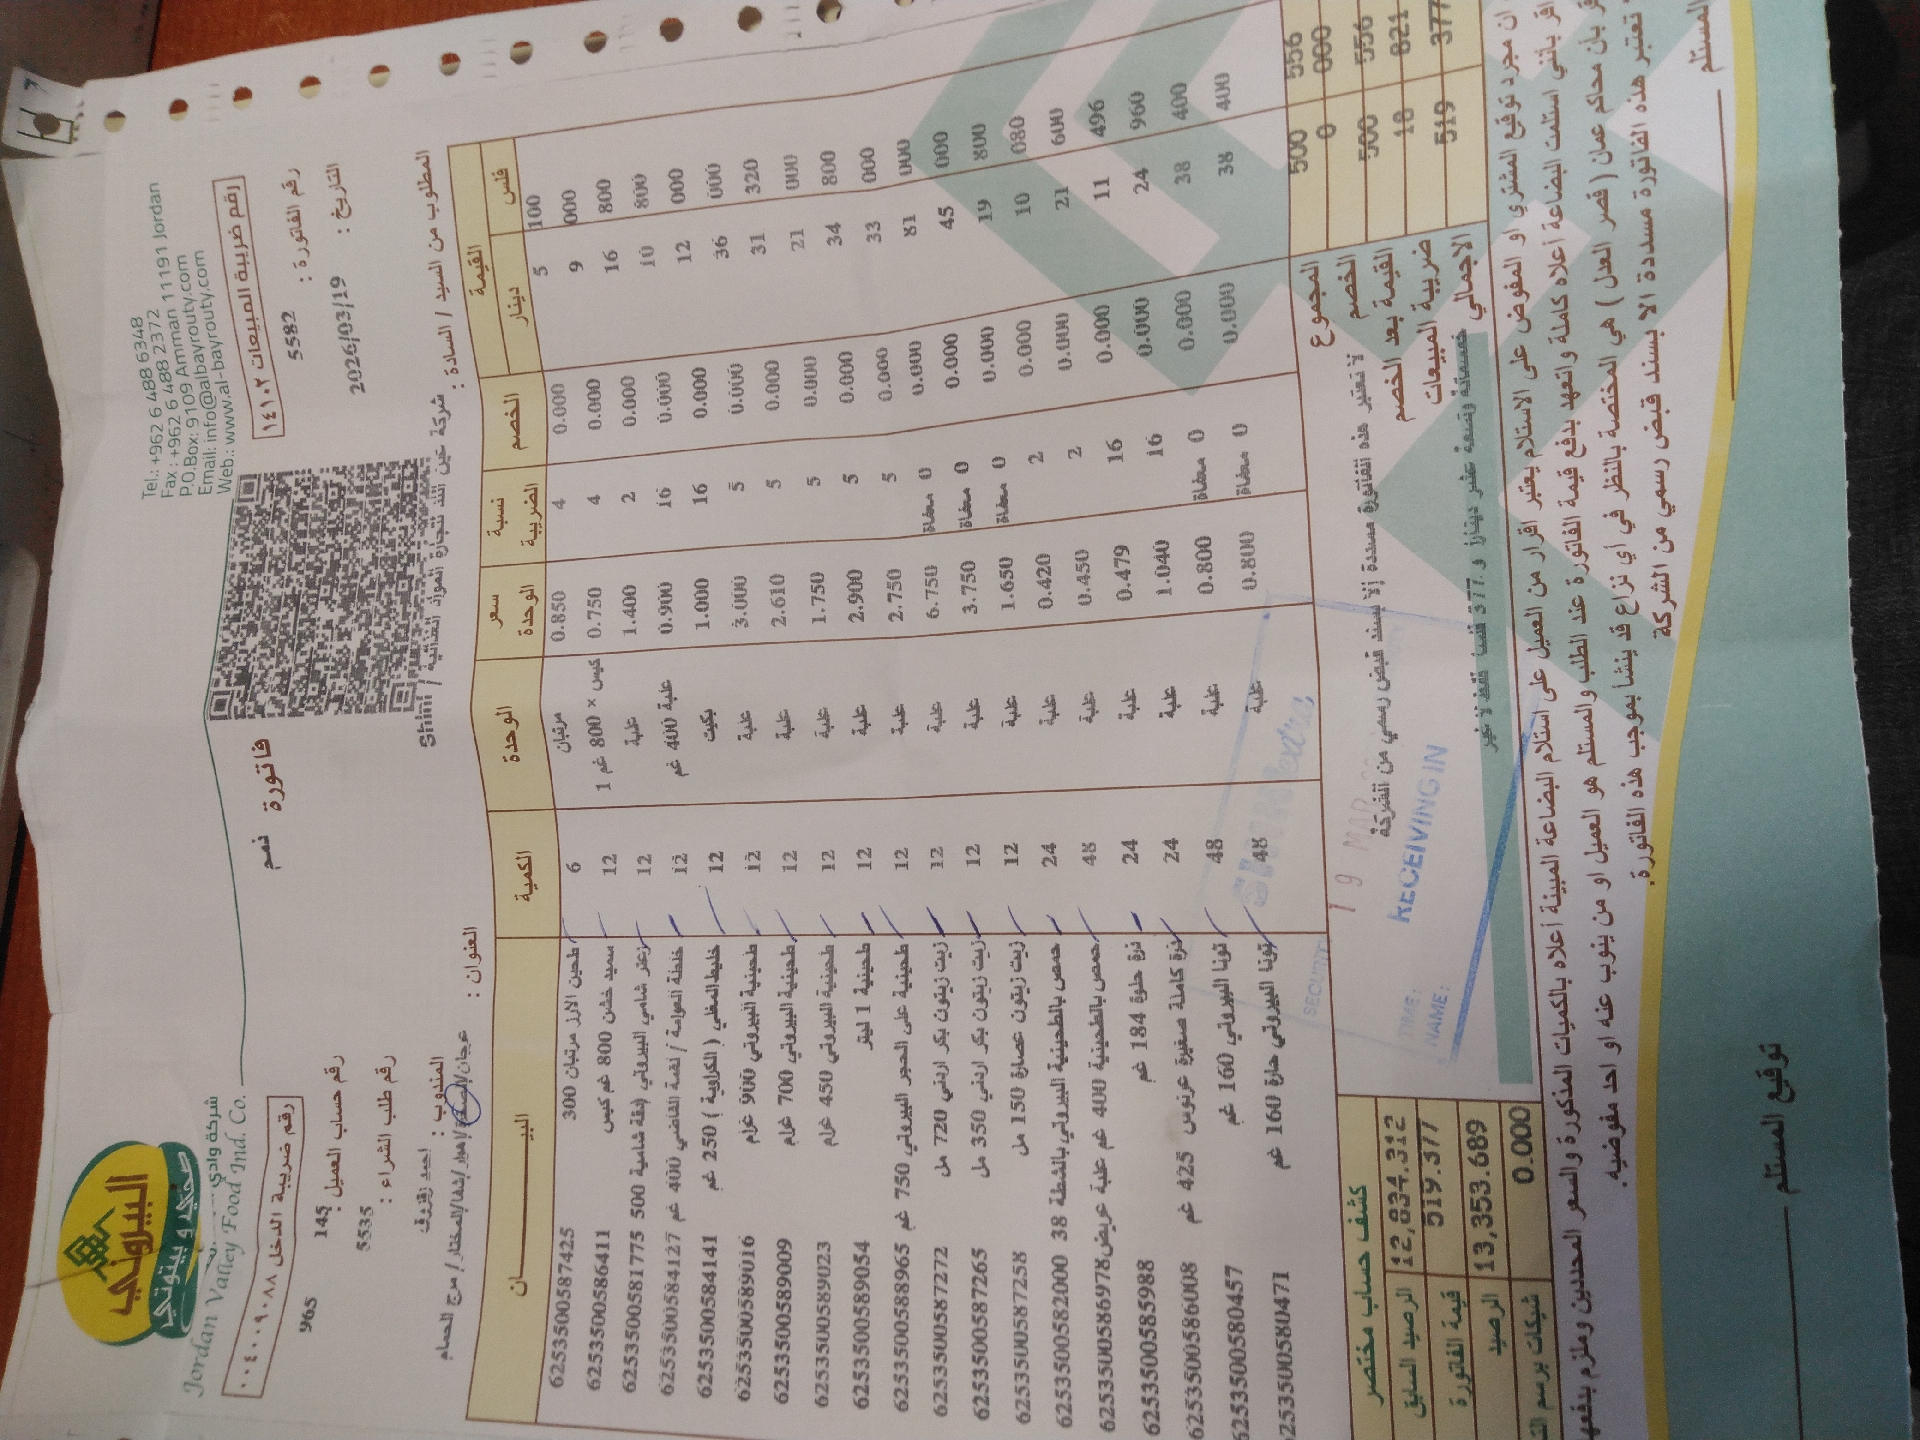 البيروني
شركة وادي
Jordan Valley Food Ind. Co.
Tel.: +962 6 488 6348
Fax : +962 6 488 2372
P.O.Box: 9109 Amman 11191 Jordan
Email: info@albayrouty.com
Web.: www.al-bayrouty.com
رقم ضريبة الدخل ٠٠٤٠٠٩٠٨٨
رقم ضريبة المبيعات ١٤١٠٢
فاتورة ذمم
965
رقم حساب العميل : 145
رقم طلب الشراء : 5535
رقم الفاتورة : 5582
التاريخ : 2026/03/19
المندوب :
العنوان :
المطلوب من السيد / السادة :
البيـــــــان الكمية الوحدة سعر الوحدة نسبة الضريبة الخصم القيمة دينار فلس
6253500587425 طحين الارز مرتبان 300 6 مرتبان 0.850 4 0.000 5 100
6253500586411 سميد خشن 800 غم كيس 12 كيس × 800 غم 1 0.750 4 0.000 9 000
6253500581775 زعتر شامي البيروتي (دقة شامية 500 12 علبة 1.400 2 0.000 16 800
6253500584127 خلطة العوامة / لقمة القاضي 400 غم 12 علبة 400 غم 0.900 16 0.000 10 800
6253500584141 خليط المغلي ( الكراوية ) 250 غم 12 بكيت 1.000 16 0.000 12 000
6253500589016 طحينية البيروتي 900 غرام 12 علبة 3.000 5 0.000 36 000
6253500589009 طحينية البيروتي 700 غرام 12 علبة 2.610 5 0.000 31 320
6253500589023 طحينية البيروتي 450 غرام 12 علبة 1.750 5 0.000 21 000
6253500589054 طحينية 1 ليتر 12 علبة 2.900 5 0.000 34 800
6253500588965 طحينية على الحجر البيروتي 750 غم 12 علبة 2.750 5 0.000 33 000
6253500587272 زيت زيتون بكر اردني 720 مل 12 علبة 6.750 معفاة 0 0.000 81 000
6253500587265 زيت زيتون بكر اردني 350 مل 12 علبة 3.750 معفاة 0 0.000 45 000
6253500587258 زيت زيتون عصارة 150 مل 12 علبة 1.650 معفاة 0 0.000 19 800
6253500582000 حمص بالطحينية البيروتي بالنشطة 38 24 علبة 0.420 2 0.000 10 080
6253500586978 حمص بالطحينية 400 غم علبة عريض 48 علبة 0.450 2 0.000 21 600
6253500585988 ذرة حلوة 184 غم 24 علبة 0.479 16 0.000 11 496
6253500586008 ذرة كاملة صغيرة عرنوس 425 غم 24 علبة 1.040 16 0.000 24 960
6253500580457 تونا البيروتي 160 غم 48 علبة 0.800 معفاة 0 0.000 38 400
6253500580471 تونا البيروتي حارة 160 غم 48 علبة 0.800 معفاة 0 0.000 38 400
لا تعتبر هذه الفاتورة مسددة إلا بسند قبض رسمي من الشركة
المجموع 500 556
الخصم 0 000
القيمة بعد الخصم 500 556
ضريبة المبيعات 18 821
الاجمالي 519 377
خمسمائة وتسعة عشر دينارا و 377 فلسا فقط لا غير
كشف حساب مختصر
الرصيد السابق 12,834.312
قيمة الفاتورة 519.377
الرصيد 13,353.689
شيكات برسم 0.000
SECURITY
19 MAR
RECEIVING IN
TIME:
NAME:
ان مجرد توقيع المشتري او المفوض على الاستلام يعتبر اقرار من العميل على استلام البضاعة المبينة أعلاه بالكميات المذكورة والسعر المحددين وملزم بدفعها
اقر بأنني استلمت البضاعة أعلاه كاملة واتعهد بدفع قيمة الفاتورة عند الطلب والمستلم هو العميل او من ينوب عنه او احد مفوضيه.
بان محاكم عمان ( قصر العدل ) هي المختصة بالنظر في أي نزاع قد ينشأ بموجب هذه الفاتورة.
تعتبر هذه الفاتورة مسددة الا بسند قبض رسمي من الشركة
المستلم
توقيع المستلم